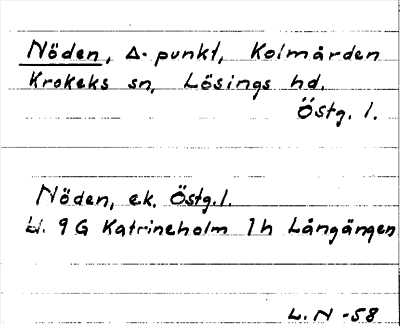 Nöden, Δ-punkt, Kolmården
Krokeks sn, Lösings hd.
Östg. l.
Nöden, ek. Östg. l.
bl. 9 G Katrineholm 1h Långängen
L.N -58